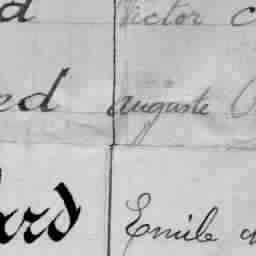 d Victor C
ed Auguste
ard Emile